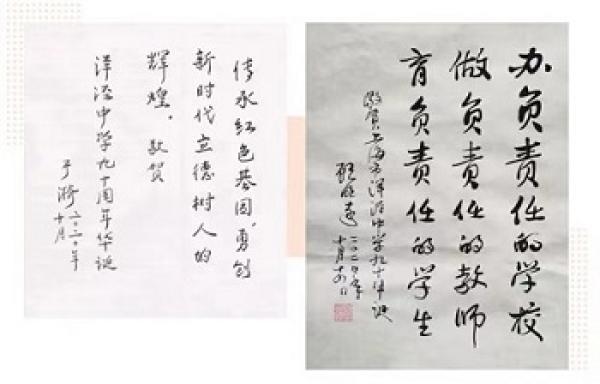 传承红色基因，勇创
新时代立德树人的
辉煌。敬贺
洋泾中学九十周年华诞
于漪
二〇二〇年
十月
办负责任的学校
做负责任的教师
育负责任的学生
敬贺上海市洋泾中学九十华诞
顾明远
二〇二〇年
十月